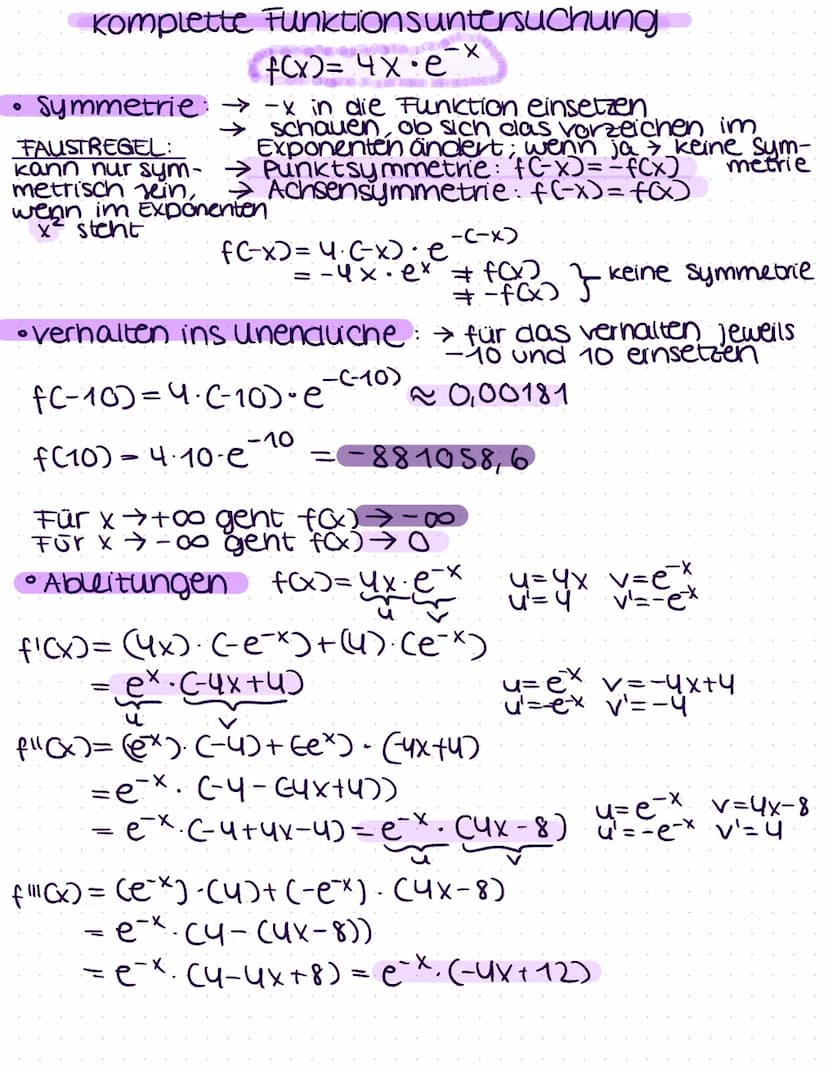 Komplette Funktionsuntersuchung
f(x)= 4x·e^-x
• Symmetrie: → -x in die Funktion einsetzen
→ schauen, ob sich das Vorzeichen im
Exponenten ändert; wenn ja → keine Symmetrie
FAUSTREGEL:
kann nur sym-
metrisch sein,
wenn im Exponenten
x² steht
→ Punktsymmetrie: f(-x)=-f(x)
→ Achsensymmetrie: f(-x)=f(x)
f(-x)=4·(-x)·e^-(-x)
= -4x·e^x ≠ f(x)
≠ -f(x) } keine Symmetrie
• Verhalten ins Unendliche: → für das Verhalten jeweils
-10 und 10 einsetzen
f(-10)=4·(-10)·e^-(-10) ≈ 0,00181
f(10)=4·10·e^-10 = -881058,6
Für x→+∞ geht f(x)→-∞
Für x→-∞ geht f(x)→0
• Ableitungen f(x)=4x·e^-x u=4x v=e^-x
u v u'=4 v'=-e^-x
f'(x)=(4x)·(-e^-x)+(4)·(e^-x)
= e^x·(-4x+4) u=e^-x v=-4x+4
u v u'=-e^-x v'=-4
f''(x)=(e^-x)·(-4)+(-e^x)·(-4x+4)
=e^-x·(-4-(-4x+4))
= e^-x·(-4+4x-4)=e^-x·(4x-8) u=e^-x v=4x-8
u v u'=-e^-x v'=4
f'''(x)=(e^-x)·(4)+(-e^-x)·(4x-8)
= e^-x·(4-(4x-8))
= e^-x·(4-4x+8)=e^-x·(-4x+12)